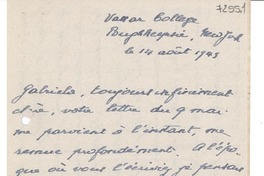 72551
Vassar College
Poughkeepsie, New York
le 14 août 1945
Gabriela, toujours infiniment
chère, votre lettre du 9 mai
me parvient à l'instant, me
remue profondément. A l'épo-
que où vous l'écriviez je pensais